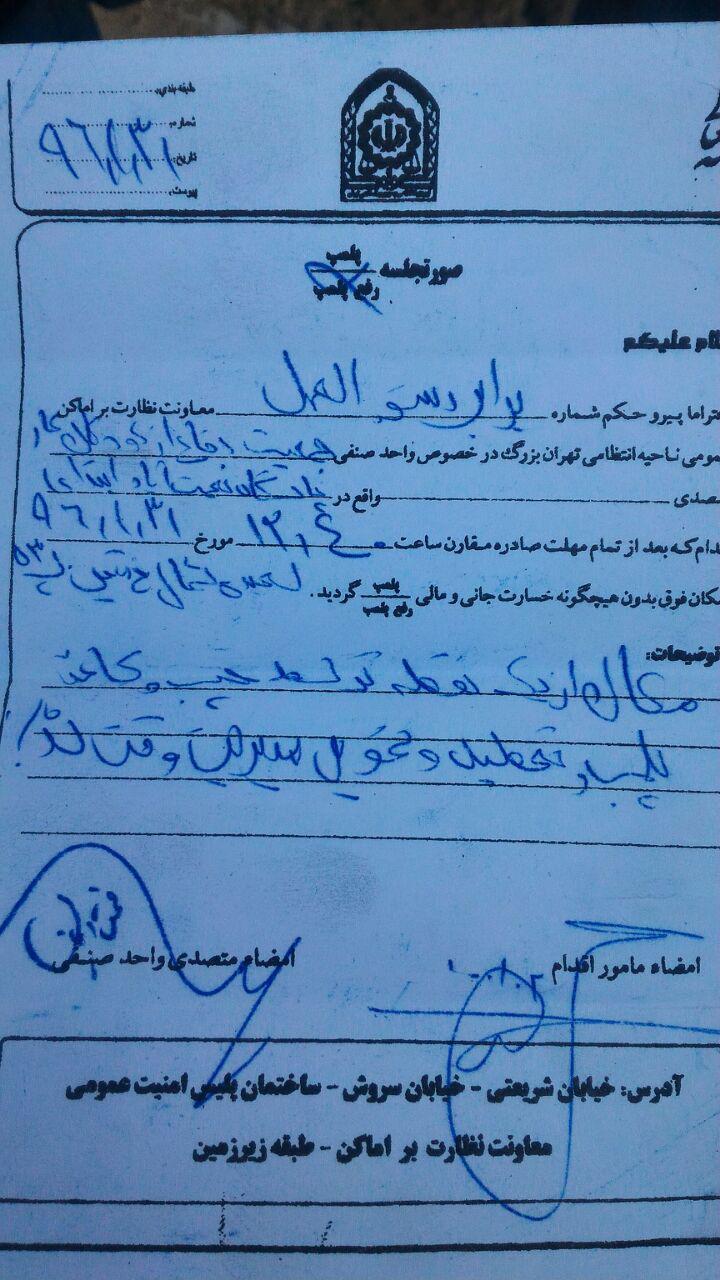 طبقه بندی:
شماره:
تاریخ: ۹۶/۱/۳۱
پیوست:
صورتجلسه پلمپ
رفع پلمپ
علیکم
پیرو حکم شماره برابر دستور العمل معاونت نظارت بر اماکن
عمومی ناحیه انتظامی تهران بزرگ در خصوص واحد صنفی جمعیت دفاع از کودکان کار
واقع در نعمت آباد ابتدای
که بعد از تمام مهلت صادره مقارن ساعت ۱۳،۴۰ مورخ ۹۶/۱/۳۱
فوق بدون هیچگونه خسارت جانی و مالی پلمپ گردید.
رفع پلمپ
توضیحات:
از یک نقطه توسط چسب و کاغذ
پلمپ و تعطیل و تحویل مدیریت وقت شد
امضاء مامور اقدام
امضاء متصدی واحد صنفی
آدرس: خیابان شریعتی - خیابان سروش - ساختمان پلیس امنیت عمومی
معاونت نظارت بر اماکن - طبقه زیرزمین